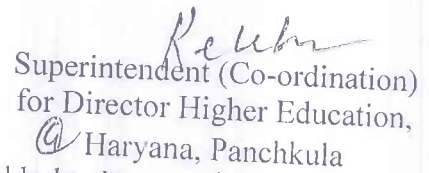 Superintendent (Co-ordination)
for Director Higher Education,
@ Haryana, Panchkula